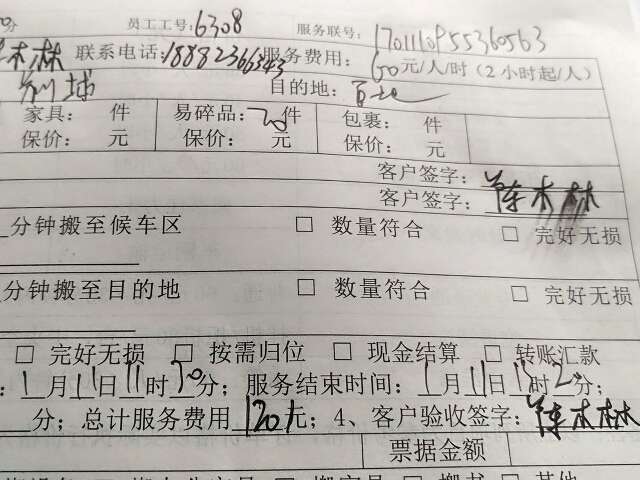 0分 员工工号:6308 服务联号:1701110955360563
木林 联系电话:18882366343 服务费用:60元/人/时(2小时起/人)
目的地:
家具: 件 易碎品:20件 包裹: 件
保价: 元 保价: 元 保价: 元
客户签字:
客户签字:陈木林
分钟搬至候车区 □ 数量符合 □ 完好无损
分钟搬至目的地 □ 数量符合 □ 完好无损
□ 完好无损 □ 按需归位 □ 现金结算 □ 转账汇款
:1月11日11时20分;服务结束时间:1月11日13时2分;
分;总计服务费用120元;4、客户验收签字:陈木林
票据金额
□ 搬家具 □ 搬书 □ 其他